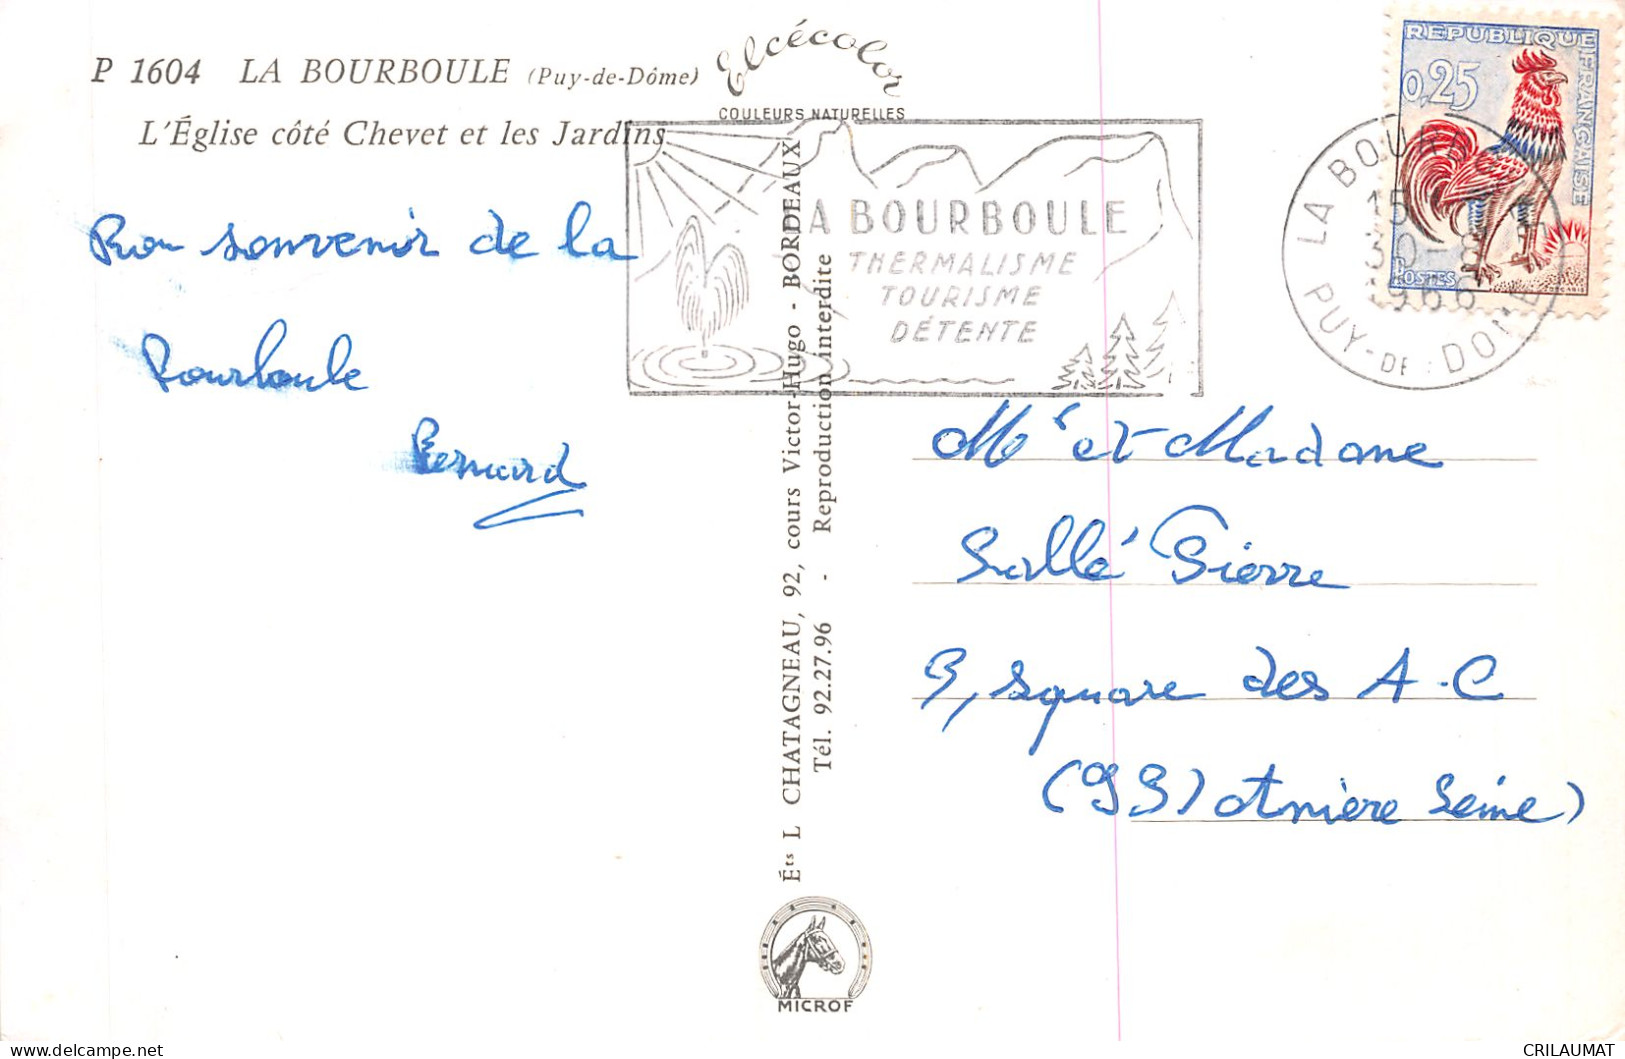 P 1604 LA BOURBOULE (Puy-de-Dôme)
L'Église côté Chevet et les Jardins
Elcécolor
COULEURS NATURELLES
Bon souvenir de la
Bourboule
Bernard
LA BOURBOULE
THERMALISME
TOURISME
DÉTENTE
Éts L CHATAGNEAU, 92, cours Victor-Hugo - BORDEAUX
Tél. 92.27.96 - Reproduction interdite
MICROF
REPUBLIQUE FRANÇAISE
0,25
POSTES
LA BOURBOULE
15
30-8
1966
PUY-DE-DOME
Mr et Madame
Sallé Pierre
9, square des A-C
(93) Anière Seine)
CRILAUMAT